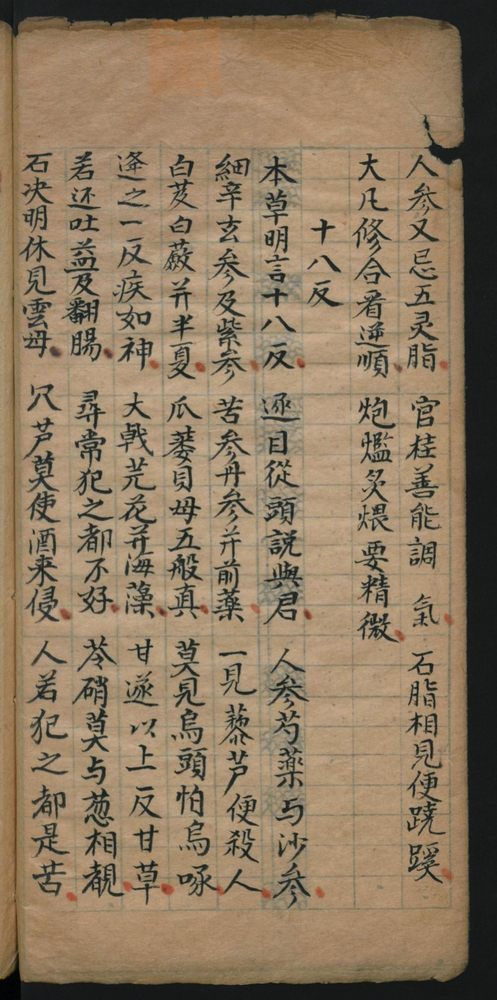 人参又忌五灵脂 官桂善能調氣 石脂相見便蹺蹊
大凡修合看逆順 炮爁炙煨要精微
十八反
本草明言十八反 逐日從頭説與君 人参芍藥与沙参
細辛玄参及紫参 苦参丹参并前藥 一見藜芦便殺人
白芨白蘞并半夏 瓜蒌貝母五般真 莫見烏頭怕烏啄
逢之一反疾如神 大戟芫花并海藻 甘遂以上反甘草
若还吐蛊及翻腸 尋常犯之都不好 苓硝莫与葱相覩
石决明休見雲母 芦莫使酒来侵 人若犯之都是苦